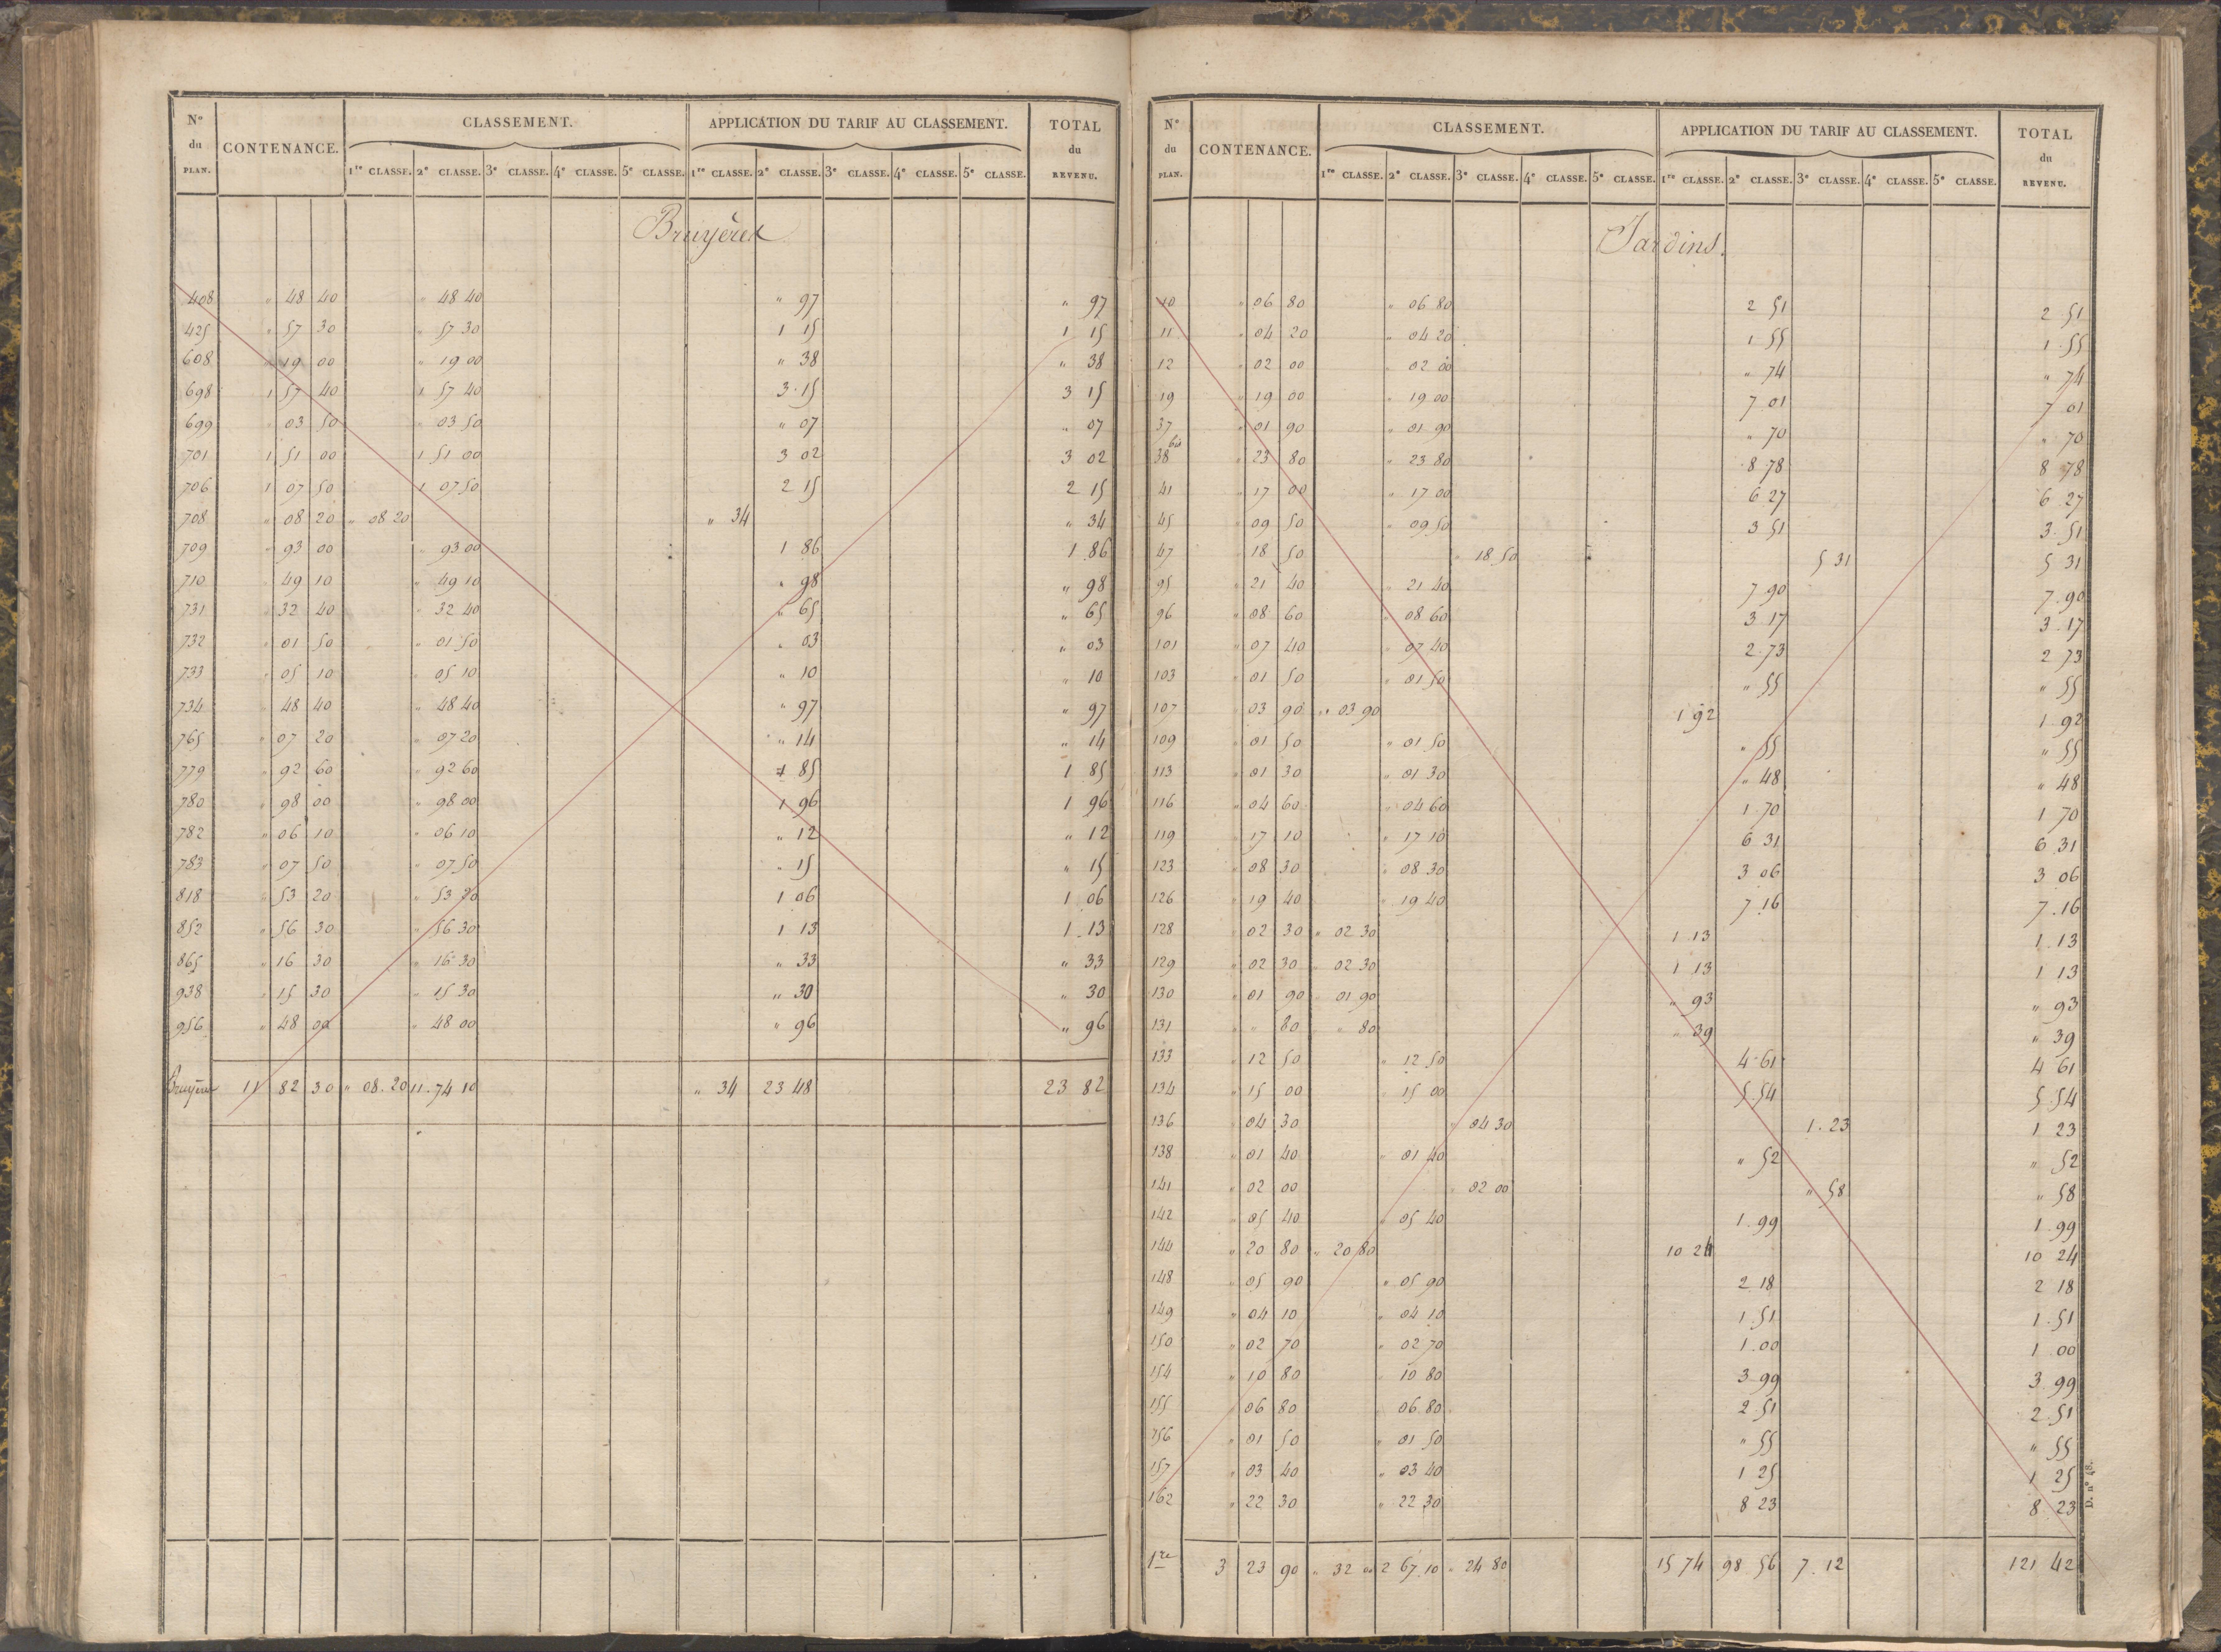 N° du PLAN. CONTENANCE. CLASSEMENT. APPLICATION DU TARIF AU CLASSEMENT. TOTAL du REVENU.
1re CLASSE. 2e CLASSE. 3e CLASSE. 4e CLASSE. 5e CLASSE. 1re CLASSE. 2e CLASSE. 3e CLASSE. 4e CLASSE. 5e CLASSE.
Bruyères
408 " 48 40 " 48 40 " 97 " 97
425 " 57 30 " 57 30 1 15 1 15
608 " 19 00 " 19 00 " 38 " 38
698 1 57 40 1 57 40 3 15 3 15
699 " 03 50 " 03 50 " 07 " 07
701 1 51 00 1 51 00 3 02 3 02
706 1 07 50 1 07 50 2 15 2 15
708 " 08 20 " 08 20 " 34 " 34
709 " 93 00 " 93 00 1 86 1 86
710 " 49 10 " 49 10 " 98 " 98
731 " 32 40 " 32 40 " 65 " 65
732 " 01 50 " 01 50 " 03 " 03
733 " 05 10 " 05 10 " 10 " 10
734 " 48 40 " 48 40 " 97 " 97
765 " 07 20 " 07 20 " 14 " 14
779 " 92 60 " 92 60 1 85 1 85
780 " 98 00 " 98 00 1 96 1 96
782 " 06 10 " 06 10 " 12 " 12
783 " 07 50 " 07 50 " 15 " 15
818 " 53 20 " 53 20 1 06 1 06
852 " 56 30 " 56 30 1 13 1 13
865 " 16 30 " 16 30 " 33 " 33
938 " 15 30 " 15 30 " 30 " 30
956 " 48 00 " 48 00 " 96 " 96
Bruyères 11 82 30 " 08. 20 11. 74 10 " 34 23 48 23 82
N° du PLAN. CONTENANCE. CLASSEMENT. APPLICATION DU TARIF AU CLASSEMENT. TOTAL du REVENU.
1re CLASSE. 2e CLASSE. 3e CLASSE. 4e CLASSE. 5e CLASSE. 1re CLASSE. 2e CLASSE. 3e CLASSE. 4e CLASSE. 5e CLASSE.
Jardins.
10 " 06 80 " 06 80 2 51 2 51
11 " 04 20 " 04 20 1 55 1 55
12 " 02 00 " 02 00 " 74 " 74
19 " 19 00 " 19 00 7 01 7 01
37 " 01 90 " 01 90 " 70 " 70
38 bis " 23 80 " 23 80 8 78 8 78
41 " 17 00 " 17 00 6 27 6 27
45 " 09 50 " 09 50 3 51 3 51
47 " 18 50 " 18 50 5 31 5 31
95 " 21 40 " 21 40 7 90 7 90
96 " 08 60 " 08 60 3 17 3 17
101 " 07 40 " 07 40 2 73 2 73
103 " 01 50 " 01 50 " 55 " 55
107 " 03 90 " 03 90 1 92 1 92
109 " 01 50 " 01 50 " 55 " 55
113 " 01 30 " 01 30 " 48 " 48
116 " 04 60 " 04 60 1 70 1 70
119 " 17 10 " 17 10 6 31 6 31
123 " 08 30 " 08 30 3 06 3 06
126 " 19 40 " 19 40 7 16 7 16
128 " 02 30 " 02 30 1 13 1 13
129 " 02 30 " 02 30 1 13 1 13
130 " 01 90 " 01 90 " 93 " 93
131 " " 80 " 80 " 39 " 39
133 " 12 50 " 12 50 4 61 4 61
134 " 15 00 " 15 00 5 54 5 54
136 " 04 30 " 04 30 1 23 1 23
138 " 01 40 " 01 40 " 52 " 52
141 " 02 00 " 02 00 " 58 " 58
142 " 05 40 " 05 40 1 99 1 99
144 " 20 80 " 20 80 10 24 10 24
148 " 05 90 " 05 90 2 18 2 18
149 " 04 10 " 04 10 1 51 1 51
150 " 02 70 " 02 70 1 00 1 00
154 " 10 80 " 10 80 3 99 3 99
155 " 06 80 " 06 80 2 51 2 51
156 " 01 50 " 01 50 " 55 " 55
157 " 03 40 " 03 40 1 25 1 25
162 " 22 30 " 22 30 8 23 8 23
1re 3 23 90 " 32 00 2 67 10 " 24 80 15 74 98 56 7. 12 121 42
D. n° 48.